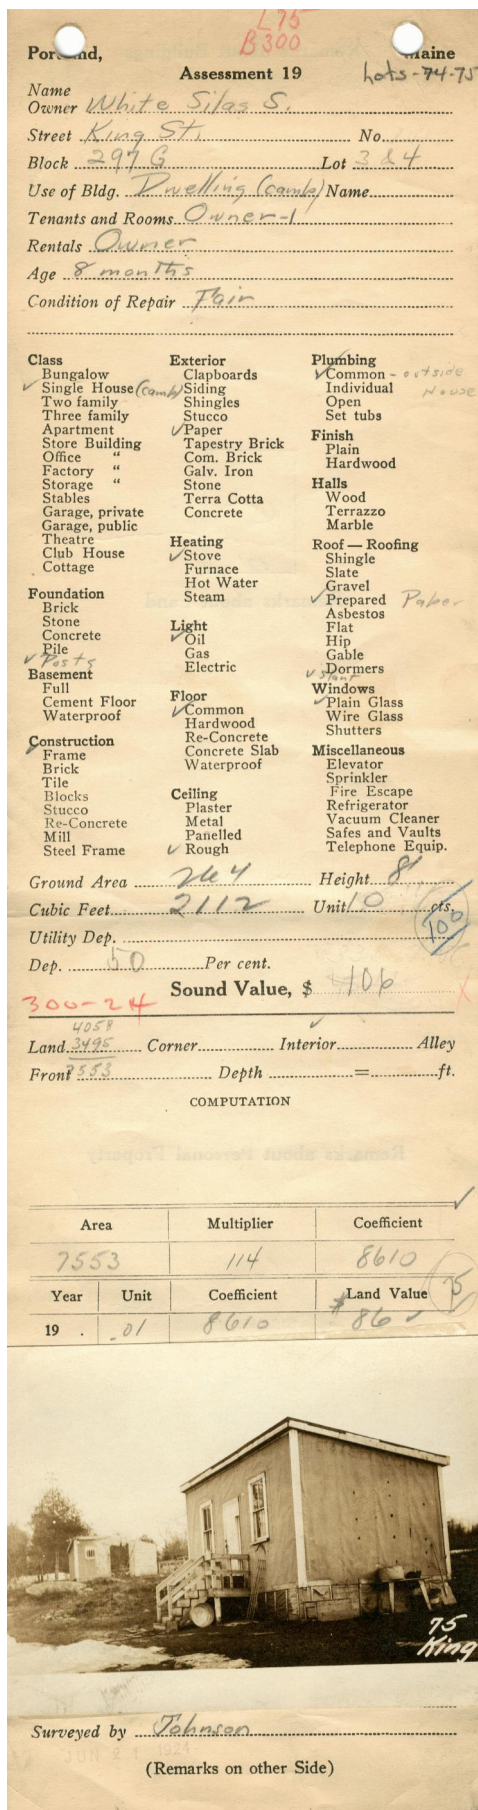 L 75
B 300
Portland, Maine
Lots-74-75
Assessment 19
Name
Owner White Silas S.
Street King St. No.
Block 297 G Lot 3 & 4
Use of Bldg. Dwelling (camb) Name
Tenants and Rooms Owner-1
Rentals Owner
Age 8 months
Condition of Repair Fair
Class
Bungalow
✓ Single House (camb)
Two family
Three family
Apartment
Store Building
Office "
Factory "
Storage "
Stables
Garage, private
Garage, public
Theatre
Club House
Cottage
Foundation
Brick
Stone
Concrete
Pile
✓ Posts
Basement
Full
Cement Floor
Waterproof
Construction
✓ Frame
Brick
Tile
Blocks
Stucco
Re-Concrete
Mill
Steel Frame
Exterior
Clapboards
Siding
Shingles
Stucco
✓ Paper
Tapestry Brick
Com. Brick
Galv. Iron
Stone
Terra Cotta
Concrete
Heating
✓ Stove
Furnace
Hot Water
Steam
Light
✓ Oil
Gas
Electric
Floor
✓ Common
Hardwood
Re-Concrete
Concrete Slab
Waterproof
Ceiling
Plaster
Metal
Panelled
✓ Rough
Plumbing
✓ Common - outside House
Individual
Open
Set tubs
Finish
Plain
Hardwood
Halls
Wood
Terrazzo
Marble
Roof — Roofing
Shingle
Slate
Gravel
✓ Prepared Paper
Asbestos
Flat
Hip
Gable
Dormers
✓ Slant
Windows
✓ Plain Glass
Wire Glass
Shutters
Miscellaneous
Elevator
Sprinkler
Fire Escape
Refrigerator
Vacuum Cleaner
Safes and Vaults
Telephone Equip.
Ground Area 264 Height 8'
Cubic Feet 2112 Unit 10 cts.
100
Utility Dep.
Dep. 50 Per cent.
Sound Value, $ 106
300-24
4058
Land 3495 Corner Interior ✓ Alley
Front 7553 Depth = ft.
COMPUTATION
Area Multiplier Coefficient
7553 114 8610
Year Unit Coefficient Land Value 75
19 . .01 8610 $ 86 ✓
75
King
Surveyed by Johnson
JUN 21 1924
(Remarks on other Side)